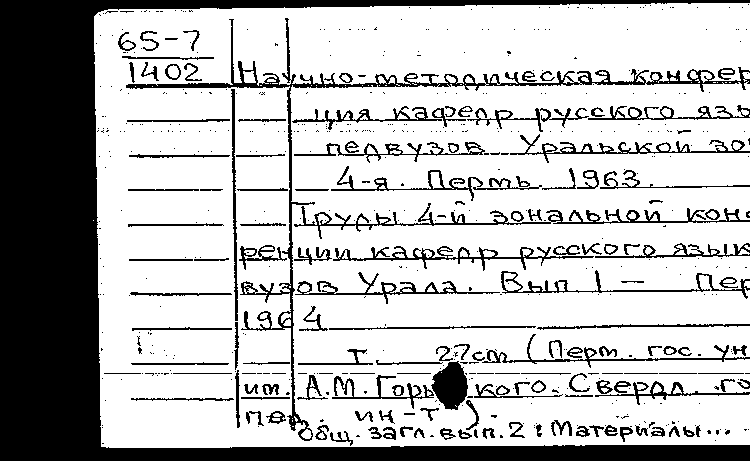 65-7
1402 Научно-методическая конфер
ция кафедр русского язы
педвузов Уральской зо
4-я. Пермь. 1963.
Труды 4-й зональной кон
ренции кафедр русского язык
вузов Урала. Вып 1 — Пер
1964
т. 27cm (Перм. гос. ун
им. А.М. Горького. Свердл. го
пед. ин-т)
Общ. загл. вып. 2: Материалы...